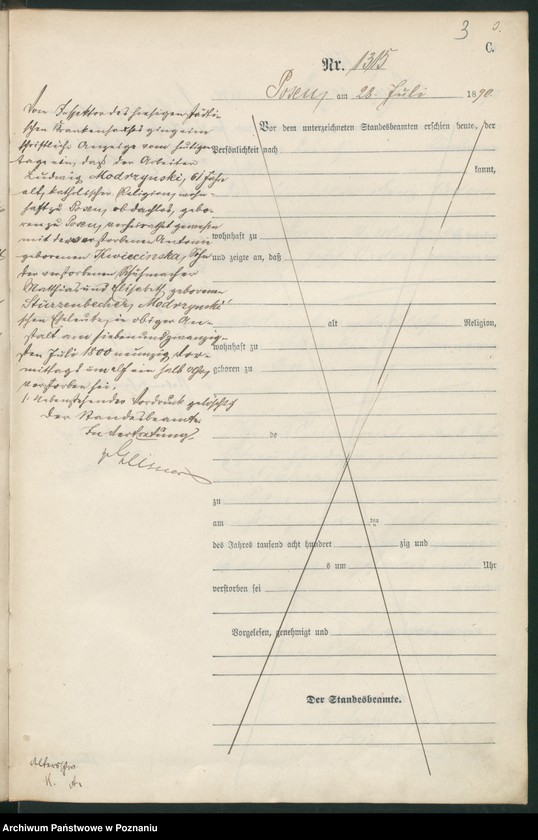 3
C.
Nr. 1315
Posen, am 28. Juli 1890.
Vom Inspektor des hiesigen städti-
schen Krankenhauses ging eine
schriftliche Anzeige vom heutigen
Tage ein, daß der Arbeiter
Ludwig Modrzynski, 61 Jahre
alt, katholischer Religion, wohn-
haft zu Posen, obdachlos, gebo-
ren zu Posen, verheirathet gewesen
mit der verstorbenen Antonie
geborenen Kwiecinska, Sohn
der verstorbenen Schuhmacher
Matthias und Elisabeth geborenen
Stürzenbecher, Modrzynski'
schen Eheleute, in obiger An-
stalt am siebenundzwanzig-
sten Juli 1800 neunzig Vor-
mittags um elf ein halb Uhr,
verstorben sei.
Nebenstehender Vordruck gelöscht
Der Standesbeamte
In Vertretung.
Vor dem unterzeichneten Standesbeamten erschien heute, der
Persönlichkeit nach
kannt,
wohnhaft zu
und zeigte an, daß
alt Religion,
wohnhaft zu
geboren zu
de
zu
am ten
des Jahres tausend acht hundert zig und
s um Uhr
verstorben sei
Vorgelesen, genehmigt und
Der Standesbeamte.
Altersschw.
K.
Archiwum Państwowe w Poznaniu